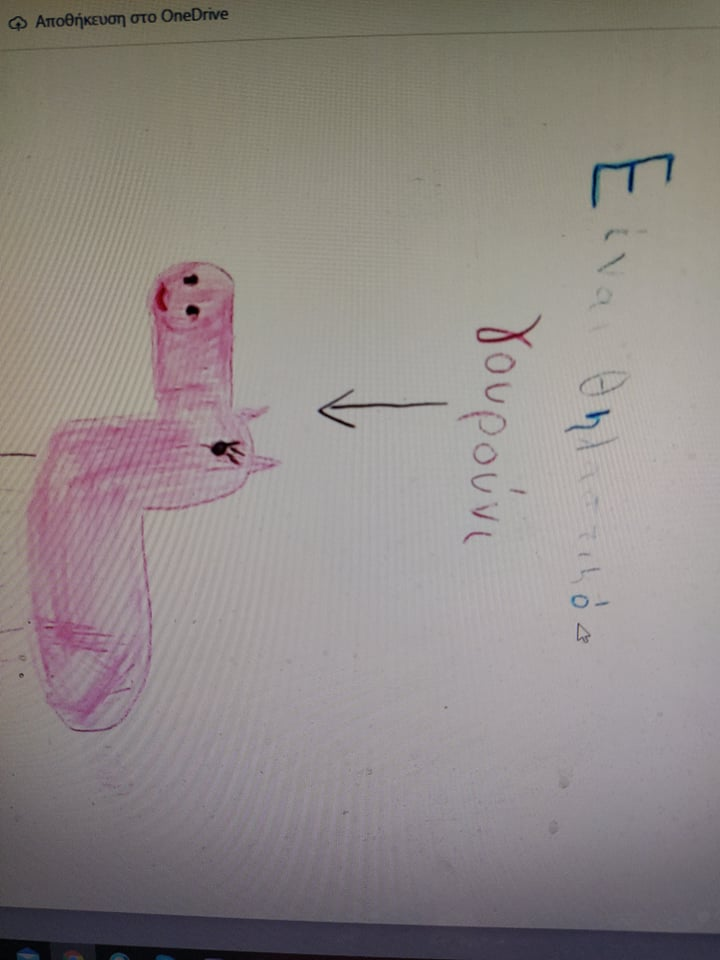 Αποθήκευση στο OneDrive
Είναι θηλαστικό
γουρούνι